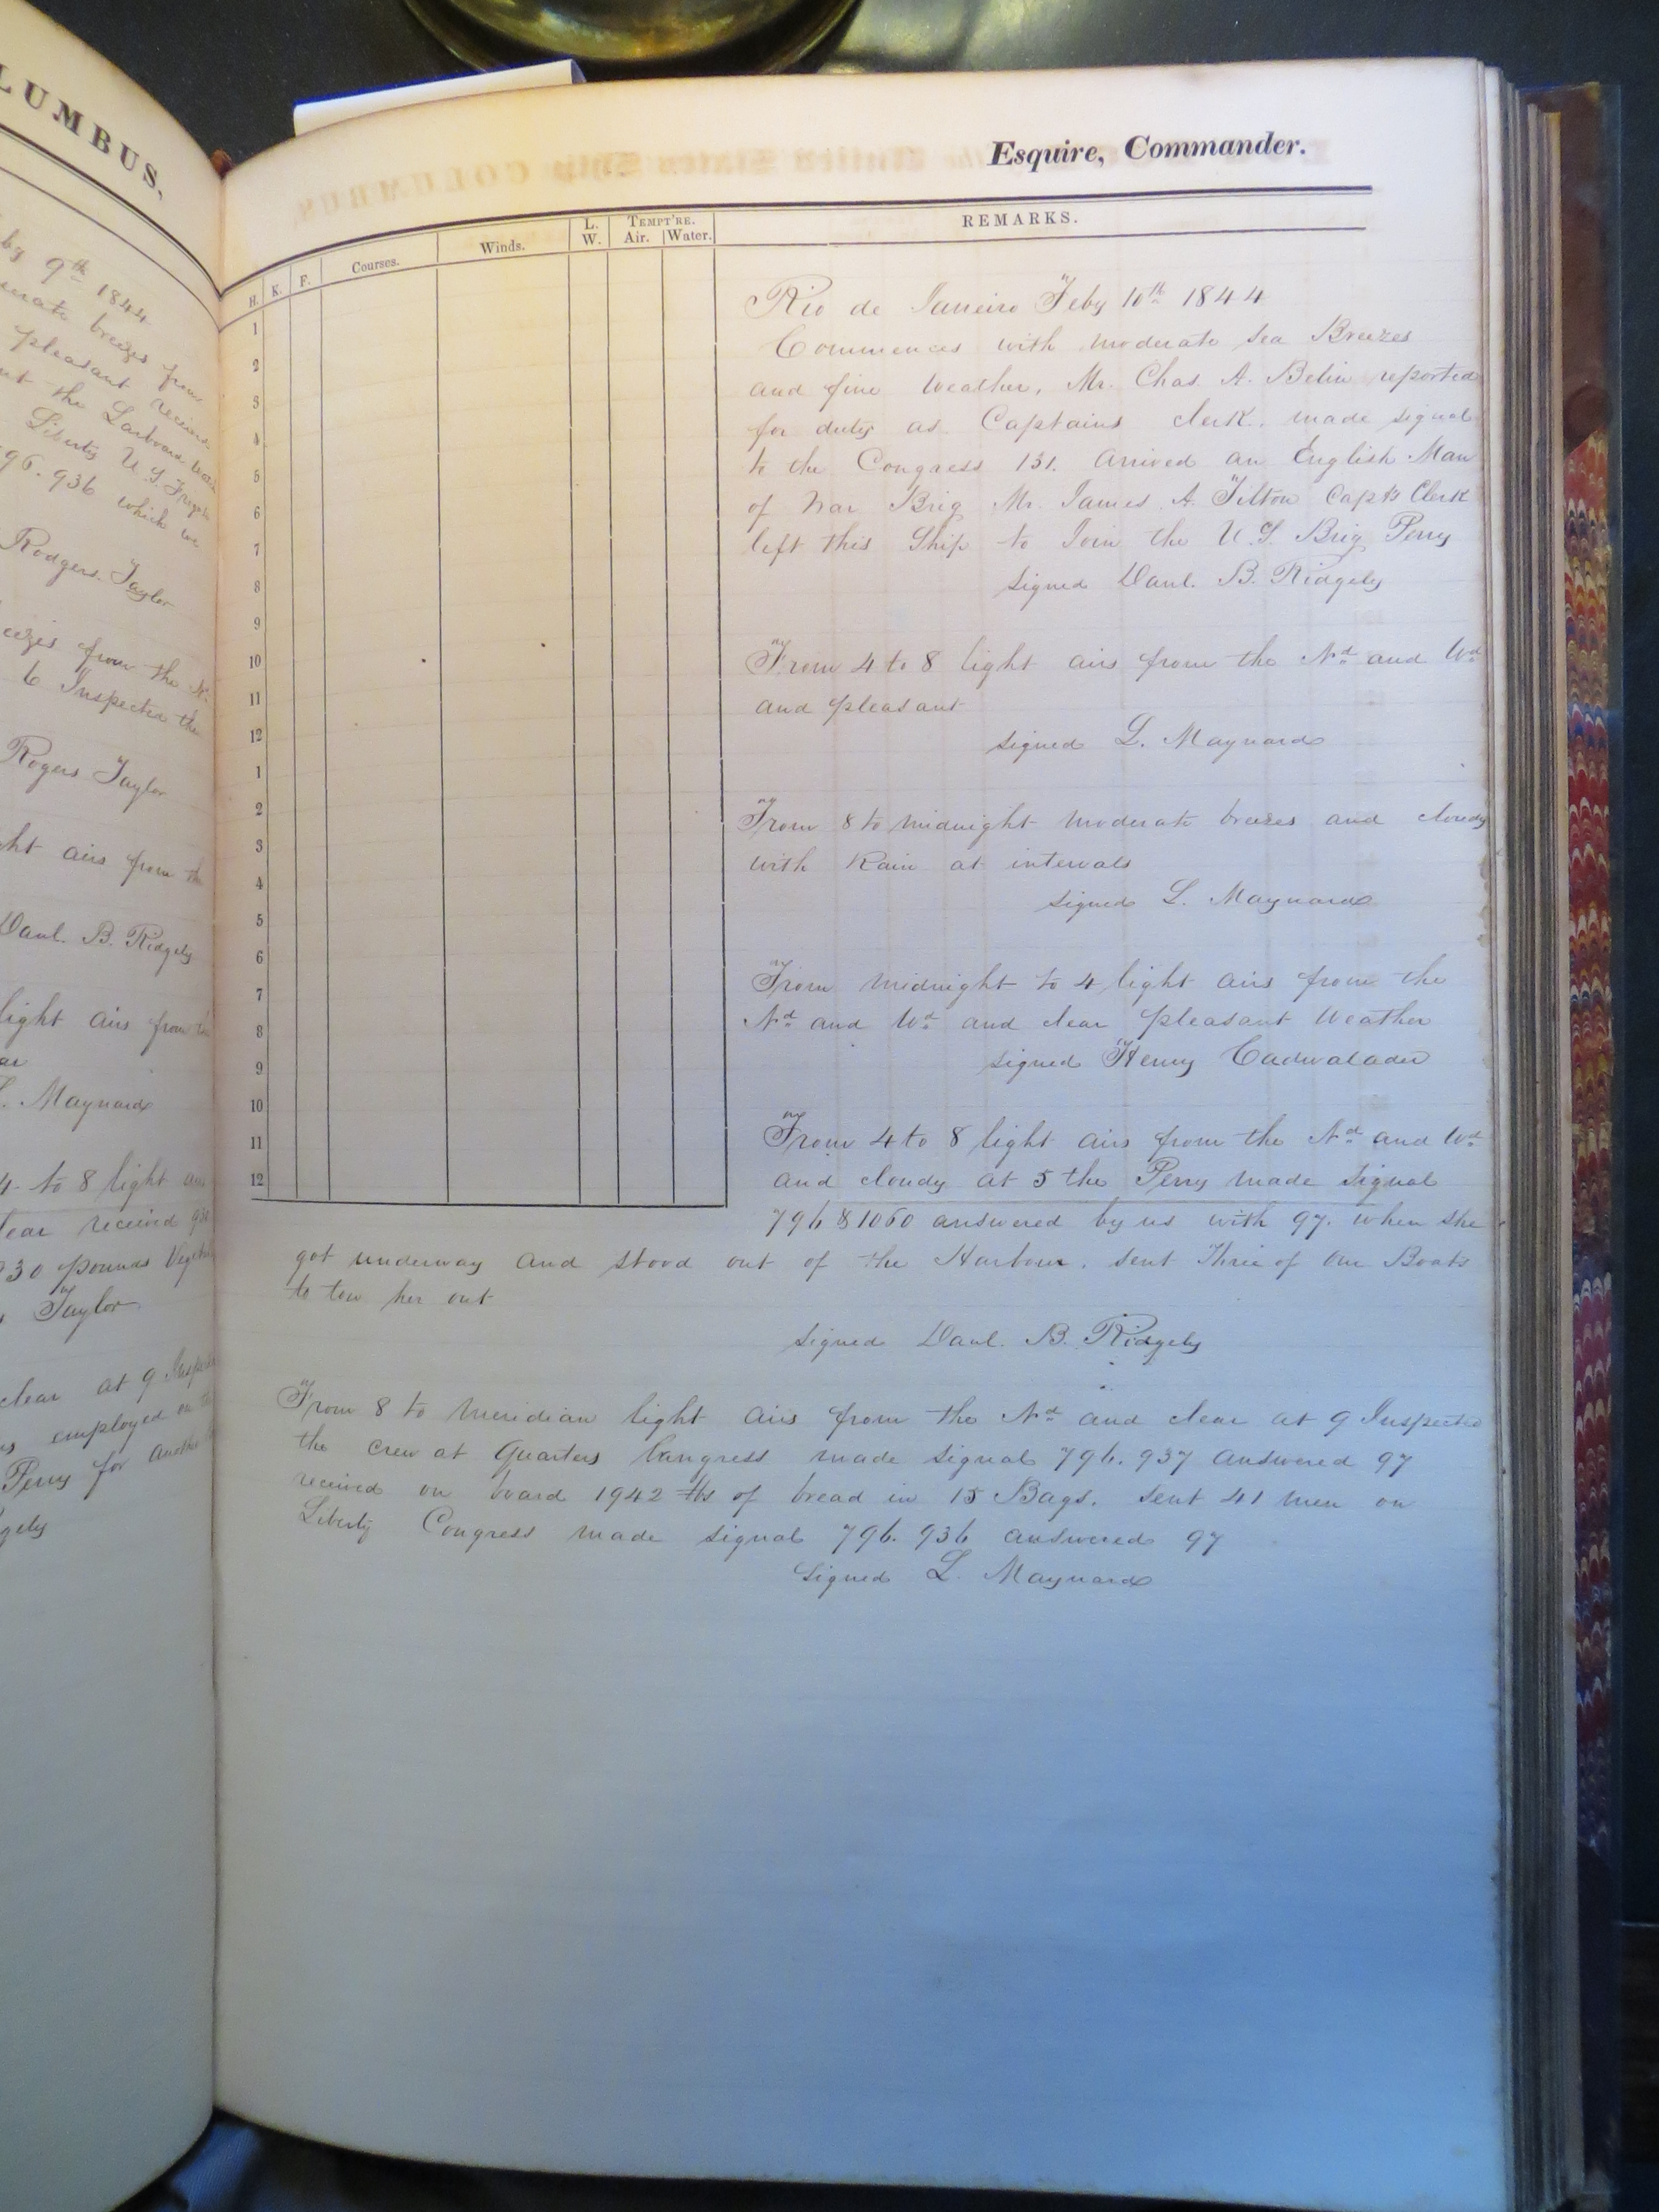 LUMBUS.
by 9th 1844
breezes from
pleasant
the Larboard
Liberty U.S. Frigate
96. 936 which we
Rodgers Taylor
from the
6 Inspected the
Rogers Taylor
ht airs from the
Danl. B. Ridgely
light airs from the
L. Maynard
4 to 8 light
received
930 pounds
Taylor
clear at 9
employed
Perry for another
Esquire, Commander.
H. K. F. Courses. Winds. L. W. TEMPT'RE. Air. Water. REMARKS.
1
2
3
4
5
6
7
8
9
10
11
12
1
2
3
4
5
6
7
8
9
10
11
12
Rio de Janeiro Feby 10th 1844
Commences with moderate Sea Breezes
and fine Weather, Mr. Chas. A. Belin reported
for duty as Captains clerk. made signal
to the Congress 131. arrived an English Man
of War Brig Mr. James A. Tilton Capts Clerk
left this Ship to Join the U.S. Brig Perry
signed Danl. B. Ridgely
From 4 to 8 light airs from the Nd and Wd
and pleasant
signed L. Maynard
From 8 to midnight moderate breezes and cloudy
with Rain at intervals
signed L. Maynard
From midnight to 4 light airs from the
Nd and Wd and clear pleasant Weather
signed Henry Cadwalader
From 4 to 8 light airs from the Nd and Wd
and cloudy at 5 the Perry made signal
796 & 1060 answered by us with 97. when she
got underway and stood out of the Harbour. sent Three of our Boats
to tow her out
signed Danl. B. Ridgely
From 8 to meridian light airs from the Nd and clear at 9 Inspected
the crew at Quarters Congress made signal 796. 937 answered 97
received on board 1942 lbs of bread in 15 Bags. sent 41 men on
Liberty Congress made signal 796. 936 answered 97
signed L. Maynard